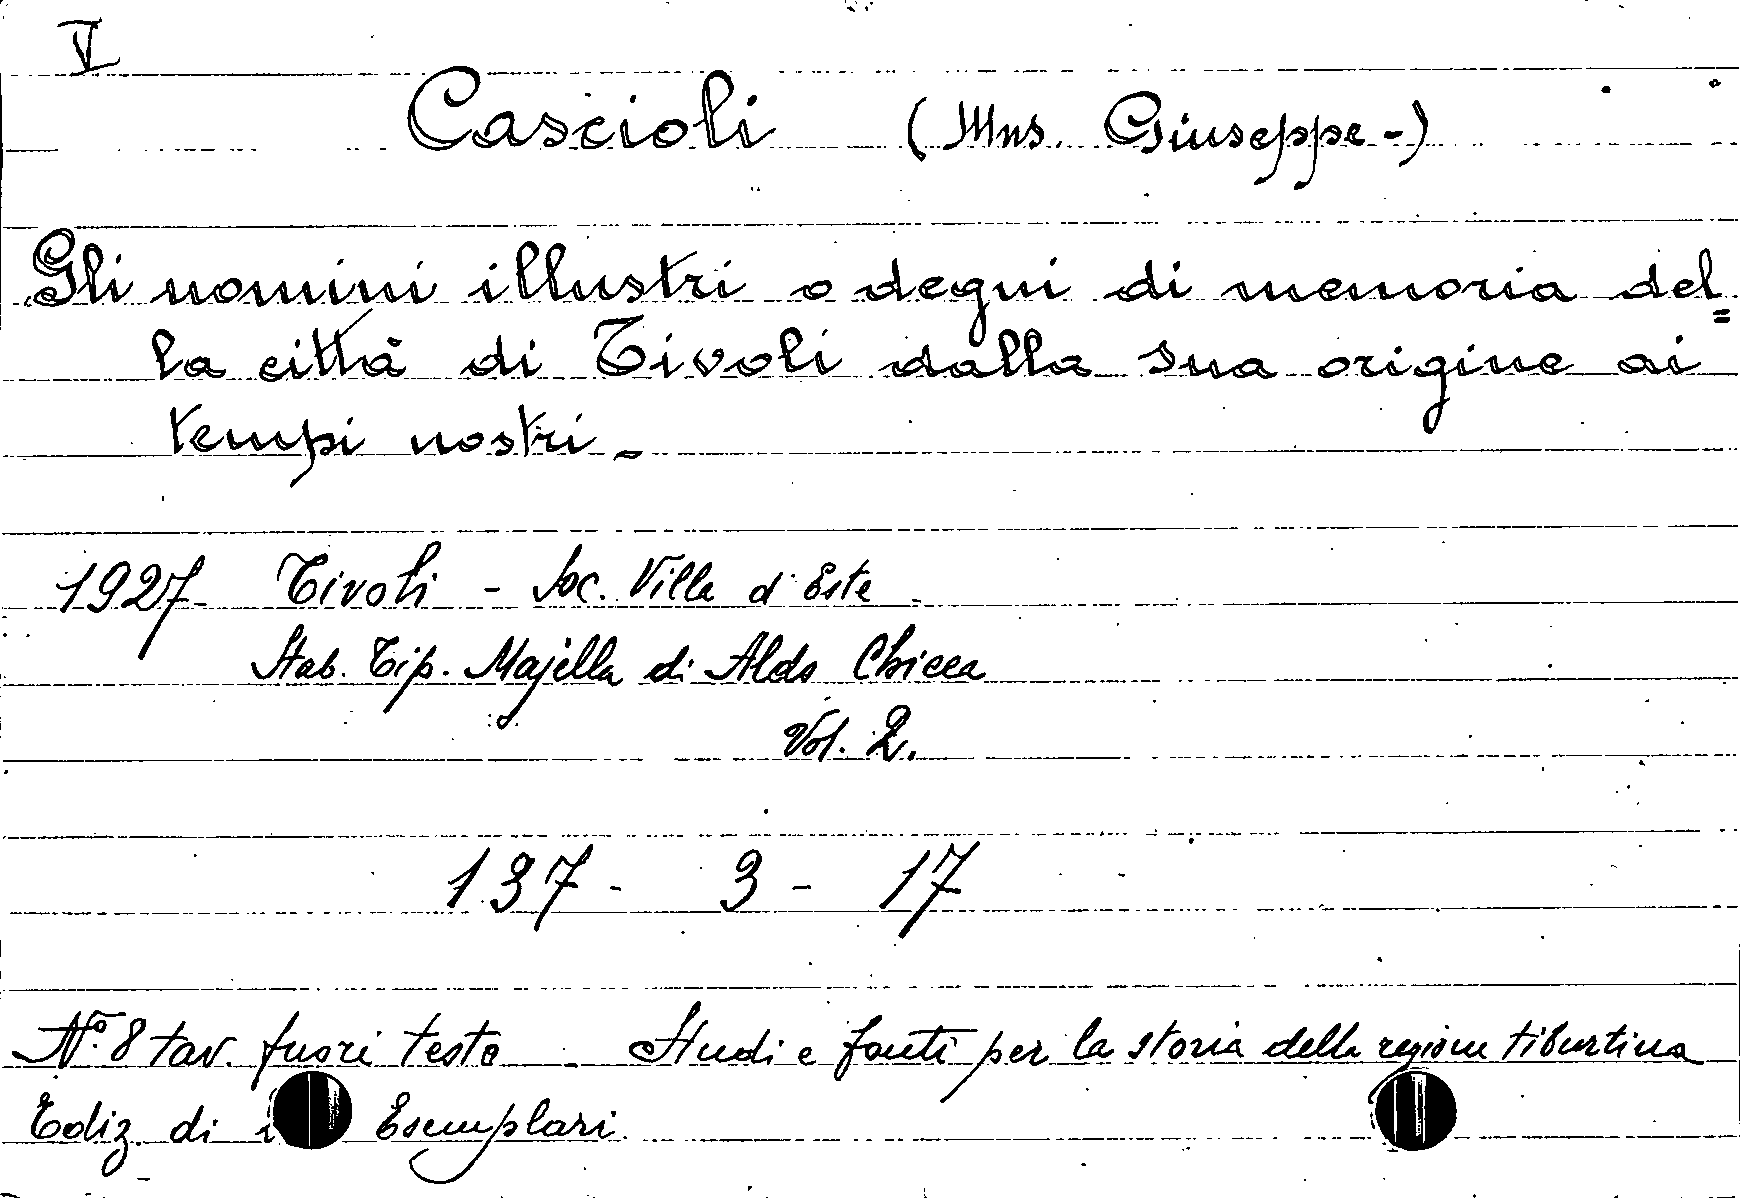 V
Cascioli (Mns. Giuseppe-)
Gli uomini illustri o degni di memoria del=
la città di Tivoli dalla sua origine ai
tempi nostri.-
1927 Tivoli - Soc. Villa d'Este
Stab. Tip. Majella di Aldo Chicca
Vol. 2.
137- 3- 17
N.° 8 tav. fuori testo - Studi e fonti per la storia della regione tiburtina
Ediz. di Esemplari.